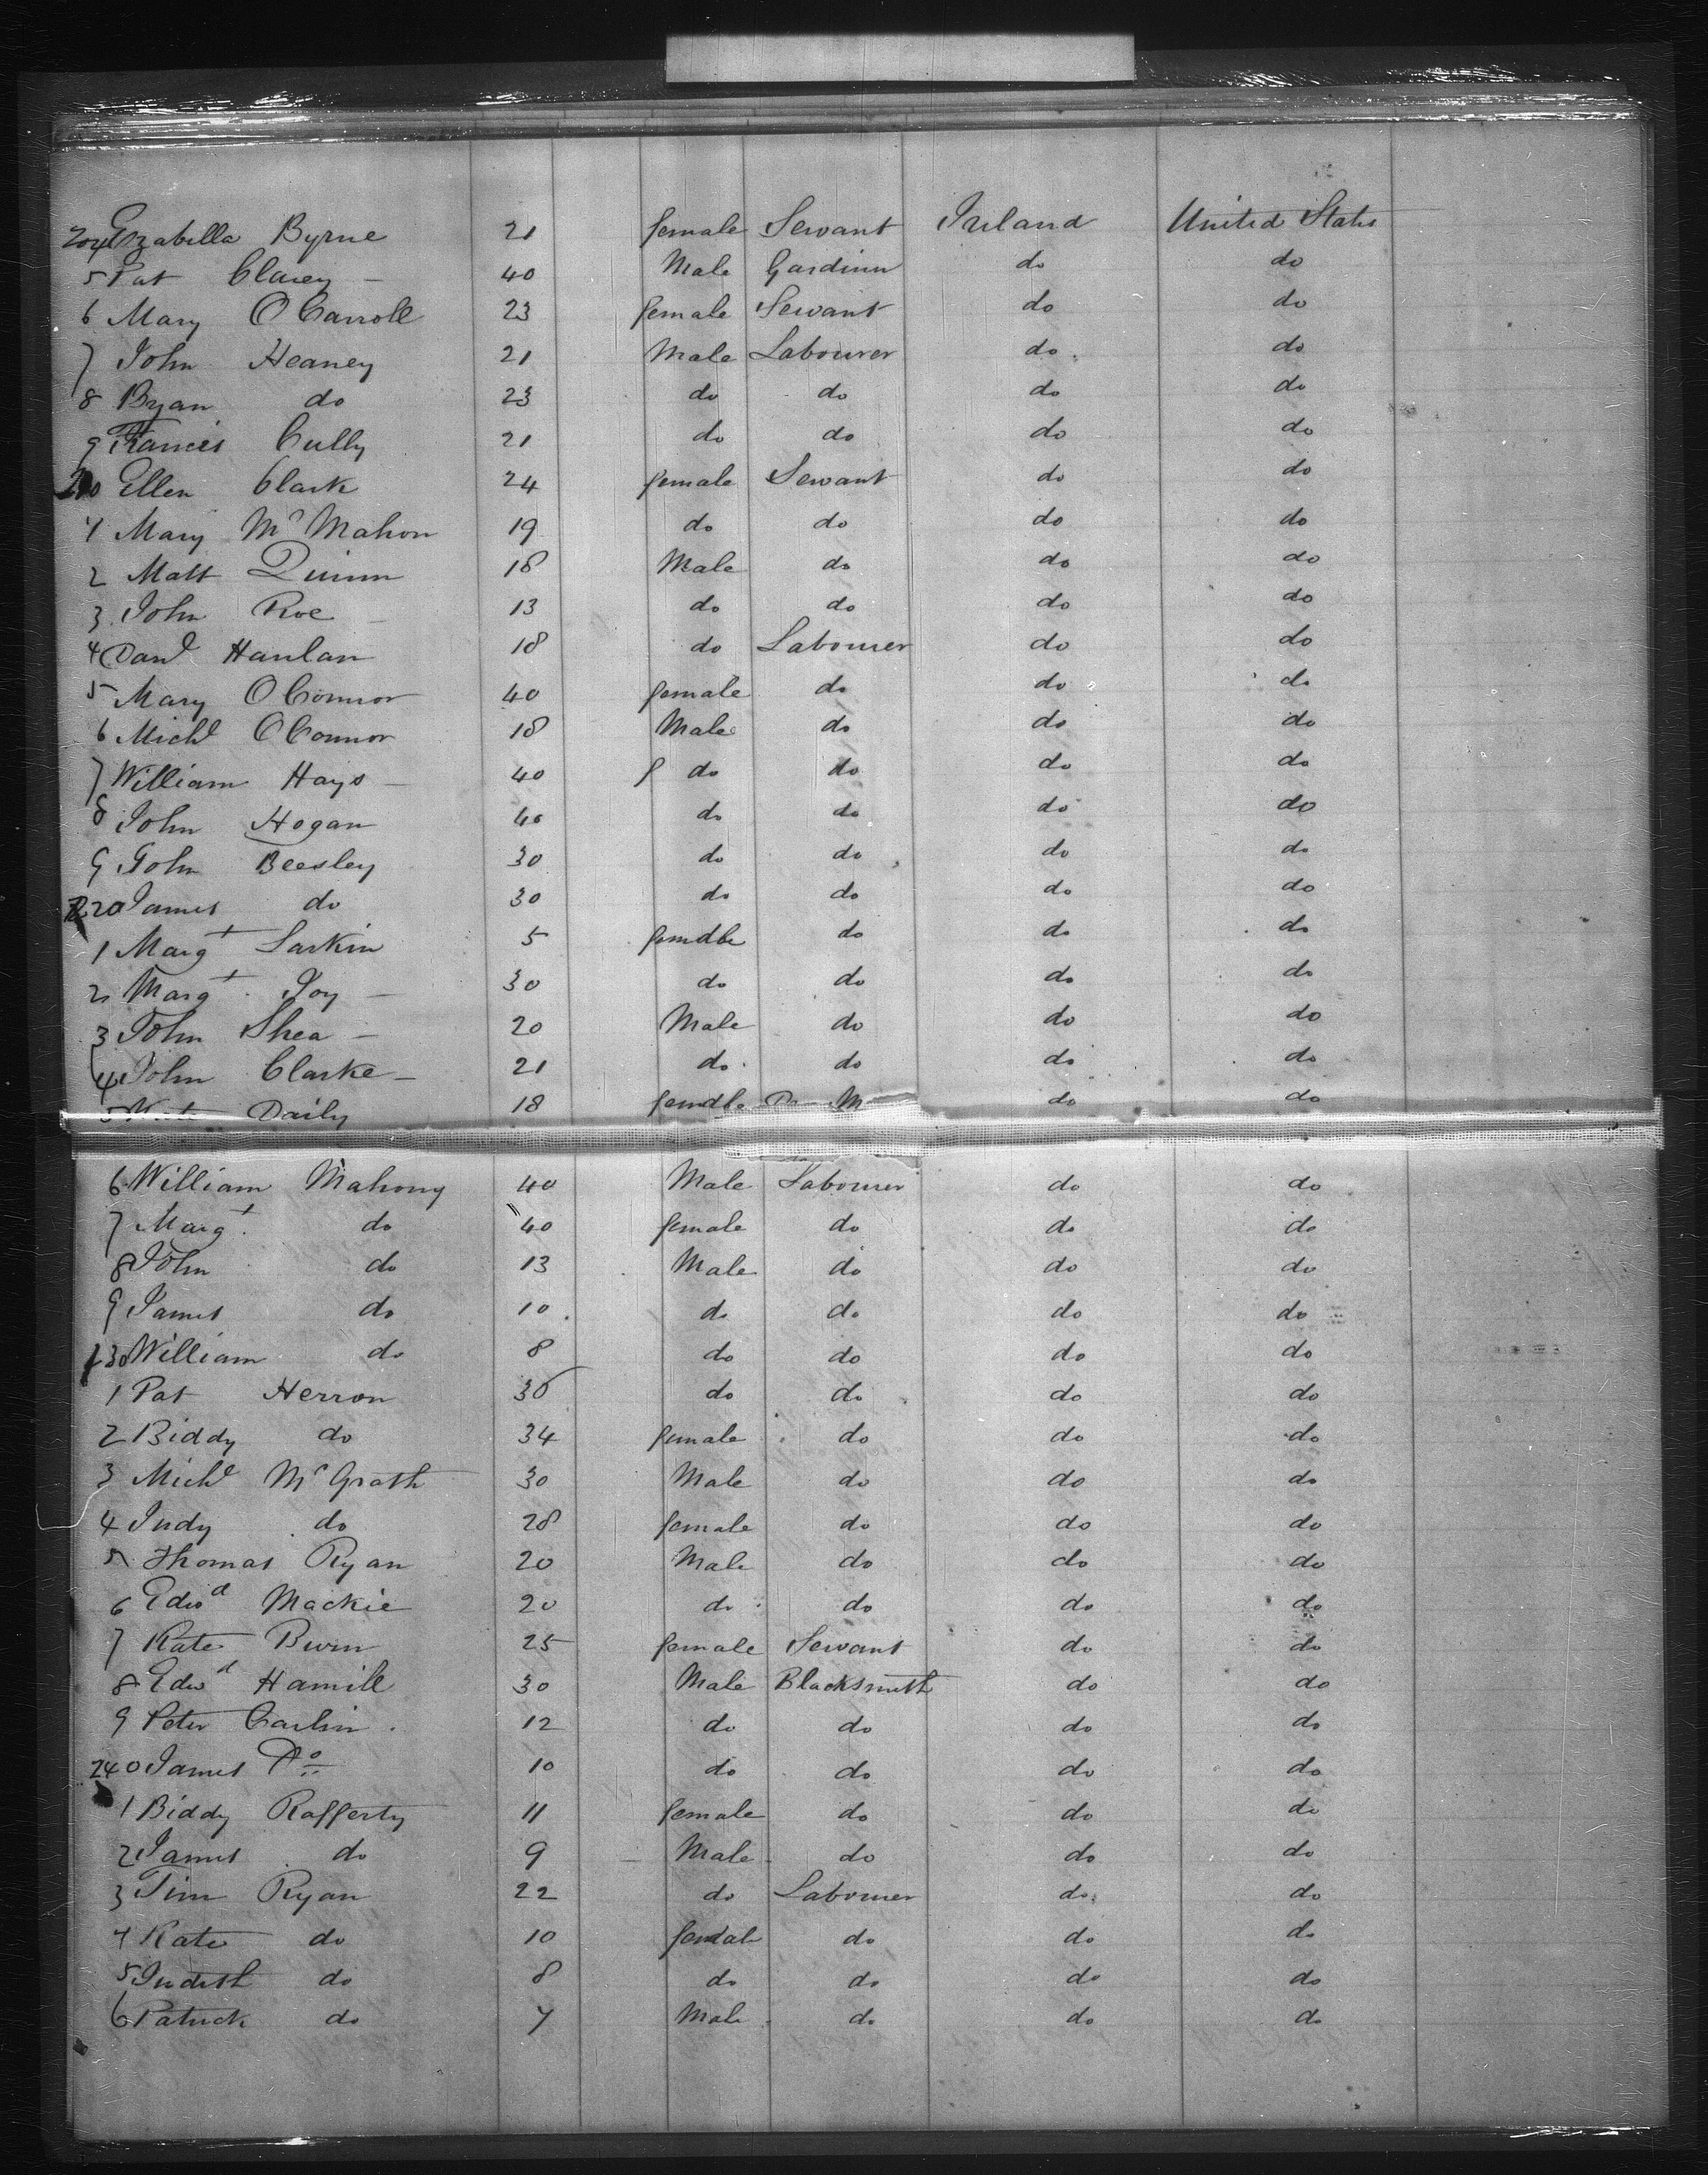 204 Izabella Byrne 21 female Servant Ireland United States
5 Pat Clarey - 40 Male Gardiner do do
6 Mary O Carroll 23 female Servant do do
7 John Heaney 21 Male Labourer do do
8 Bryan do 23 do do do do
9 Francis Cully 21 do do do do
210 Ellen Clark 24 female Servant do do
1 Mary McMahon 19 do do do do
2 Matt Quinn 18 Male do do do
3 John Roe 13 do do do do
4 Danl Hanlan 18 do Labourer do do
5 Mary O Connor 40 female do do do
6 Michl O Connor 18 Male do do do
7 William Hays - 40 do do do do
8 John Hogan 40 do do do do
9 John Beesley 30 do do do do
220 James do 30 do do do do
1 Margt Larkin 5 female do do do
2 Margt Joy - 30 do do do do
3 John Shea - 20 Male do do do
4 John Clarke - 21 do do do do
5 Daily 18 female do do
6 William Mahony 40 Male Labourer do do
7 Margt do 40 female do do do
8 John do 13 Male do do do
9 James do 10 do do do do
230 William do 8 do do do do
1 Pat Herron 30 do do do do
2 Biddy do 34 female do do do
3 Michl McGrath 30 Male do do do
4 Judy do 28 female do do do
5 Thomas Ryan 20 Male do do do
6 Edwd Mackie 20 do do do do
7 Kate 25 female Servant do do
8 Edwd Hamill 30 Male Blacksmith do do
9 Peter Carlin 12 do do do do
240 James Do 10 do do do do
1 Biddy Rafferty 11 female do do do
2 James do 9 Male do do do
3 Tim Ryan 22 do Labourer do do
4 Kate do 10 female do do do
5 Judith do 8 do do do do
6 Patrick do 7 Male do do do